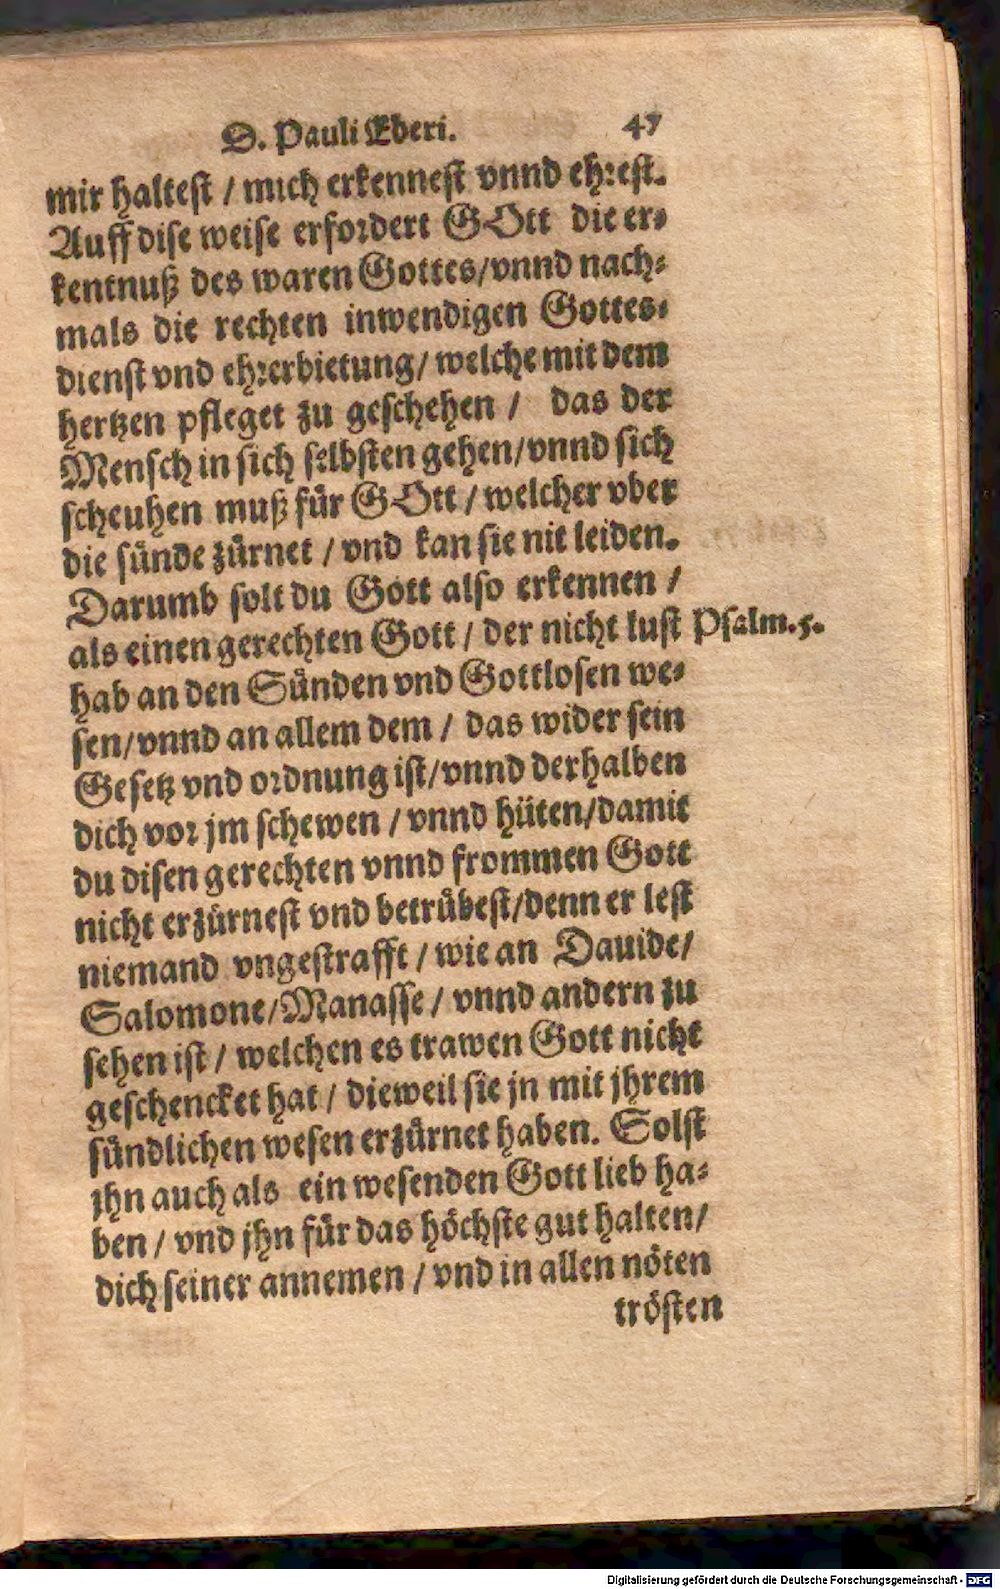 D. Pauli Eberi. 47
mir haltest / mich erkennest vnnd ehrest.
Auff dise weise erfordert GOtt die er-
kentnuß des waren Gottes/vnnd nach-
mals die rechten inwendigen Gottes-
dienst vnd ehrerbietung/ welche mit dem
hertzen pfleget zu geschehen / das der
Mensch in sich selbsten gehen/vnnd sich
scheuhen muß für GOtt / welcher vber
die sünde zürnet / vnd kan sie nit leiden.
Darumb solt du Gott also erkennen /
als einen gerechten Gott / der nicht lust Psalm.5.
hab an den Sünden vnd Gottlosen we-
sen/vnnd an allem dem / das wider sein
Gesetz vnd ordnung ist/vnnd derhalben
dich vor jm schewen / vnnd hüten/damit
du disen gerechten vnnd frommen Gott
nicht erzürnest vnd betrübest/denn er lest
niemand vngestrafft / wie an Dauide/
Salomone/Manasse / vnnd andern zu
sehen ist / welchen es trawen Gott nicht
geschencket hat / dieweil sie jn mit jhrem
sündlichen wesen erzürnet haben. Solst
jhn auch als ein wesenden Gott lieb ha-
ben / vnd jhn für das höchste gut halten/
dich seiner annemen / vnd in allen nöten
trösten
Digitalisierung gefördert durch die Deutsche Forschungsgemeinschaft - DFG